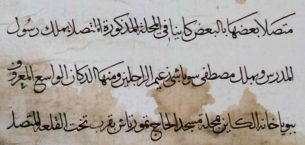 متصلا بعضها بالبعض كاينا في المحلة المذكورة المتصلا بملك رسول
المدرس وبملك مصطفى سوباشي زعيم الراجلين ومنها الدكان الواسع المعروف
ببوياخانه الكاين بمحلة مسجد الحاج تمورتاش بقرب تحت القلعة المتصل